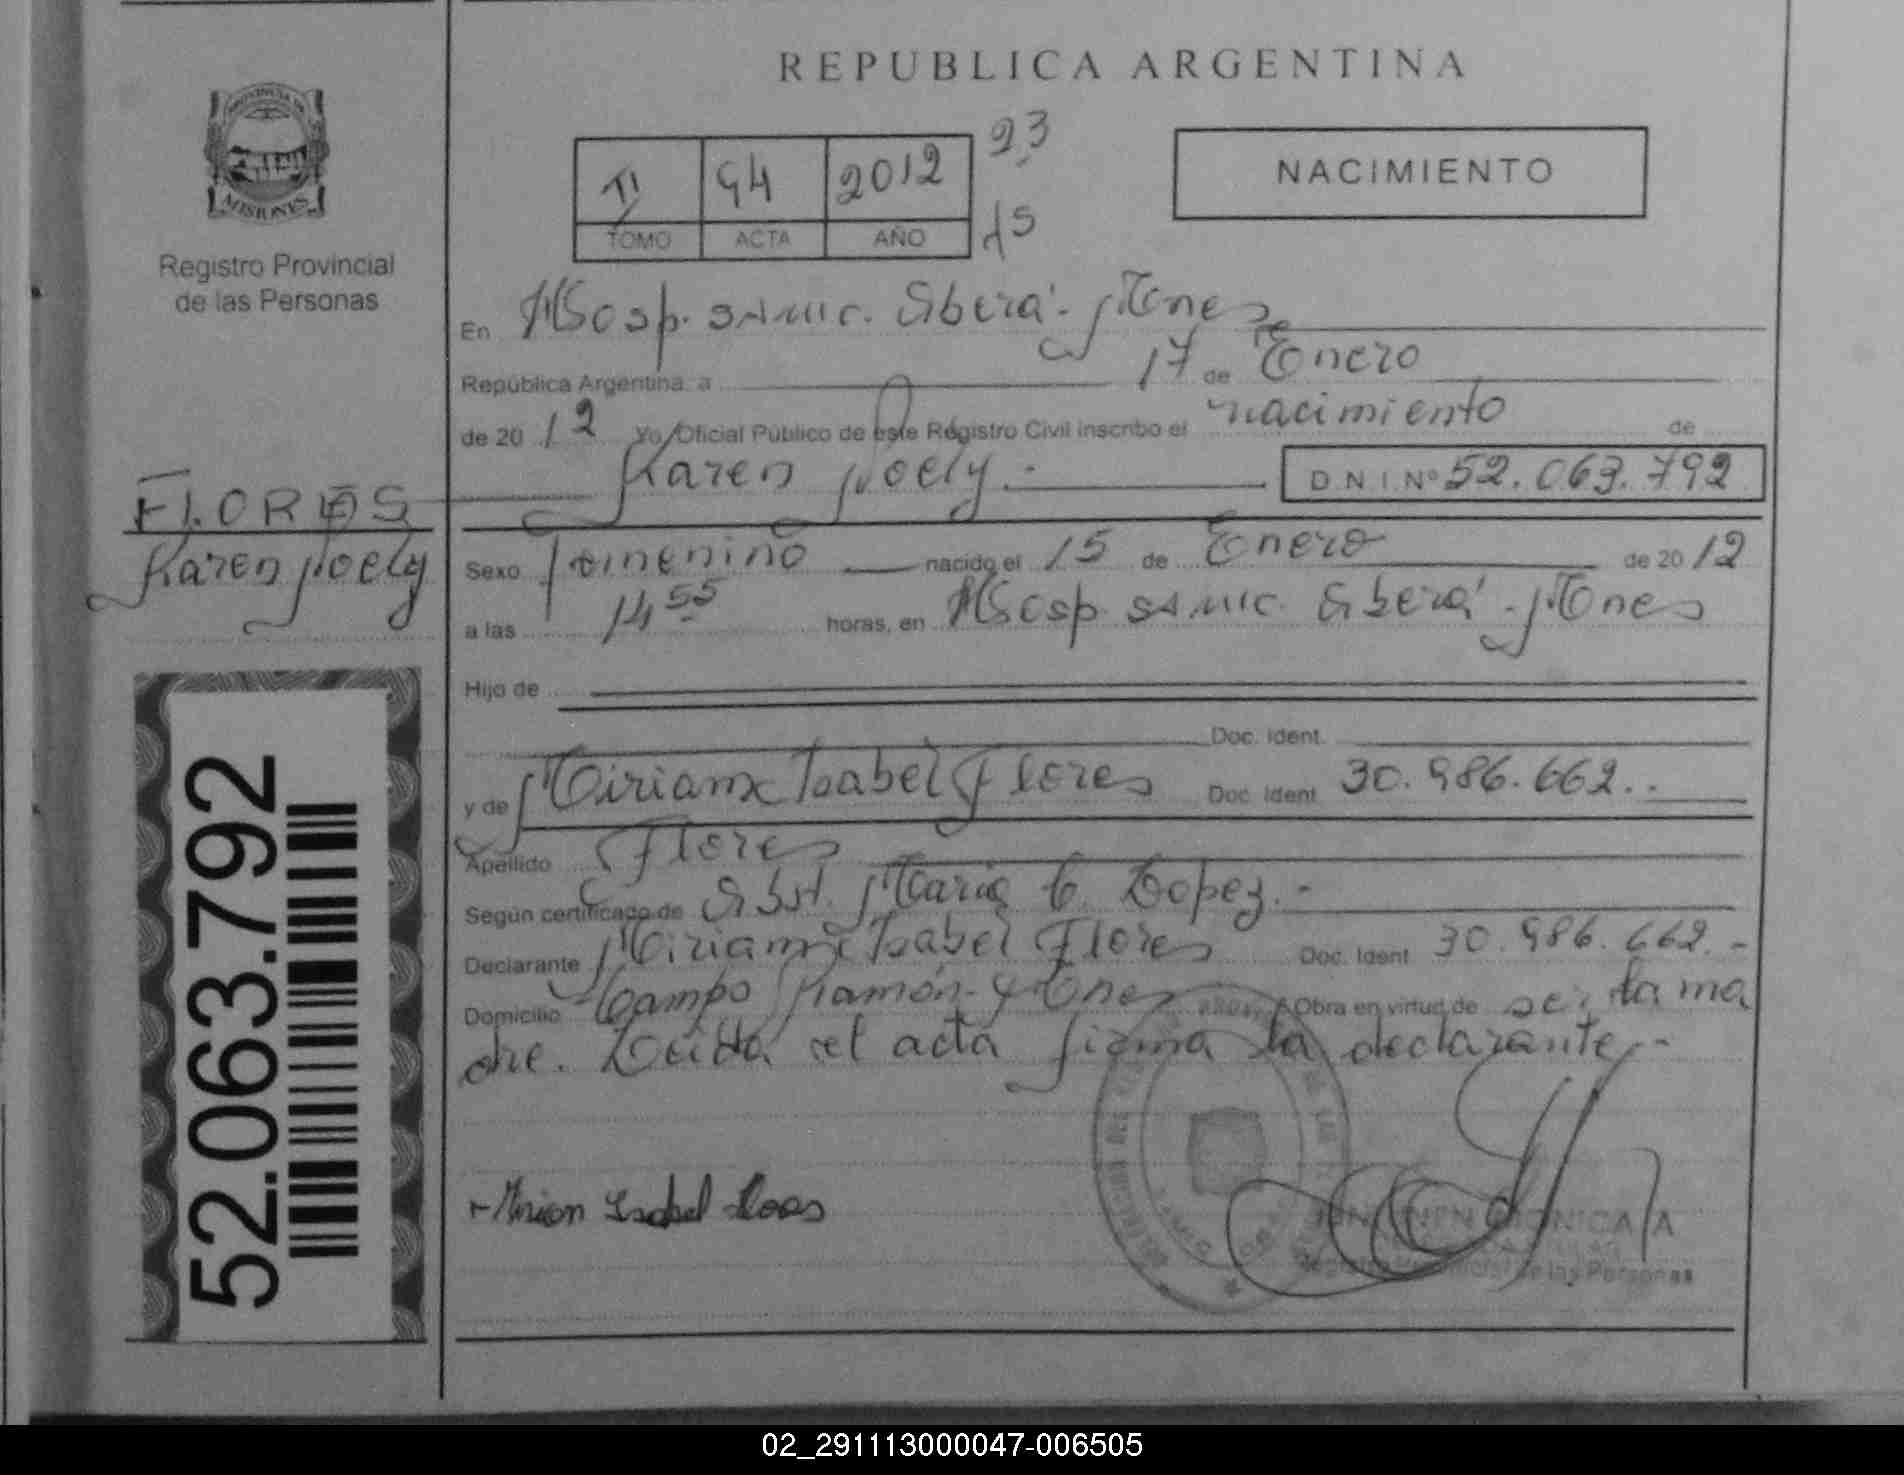 REPUBLICA ARGENTINA
PROVINCIA DE
MISIONES
Registro Provincial
de las Personas
23
TI 94 2012
TOMO ACTA AÑO
15
NACIMIENTO
En Hosp. SAMIC. Oberá - Mones
República Argentina, a 17 de Enero
de 2012 Yo Oficial Público de este Registro Civil inscribo el nacimiento de
Karen Noely.- D.N.I.Nº 52.063.792
FLORES
Karen Noely
Sexo femenino nacido el 15 de Enero de 2012
a las 14 55 horas, en Hosp. SAMIC. Oberá - Mones
Hijo de
Doc. Ident.
y de Miriam Isabel Flores Doc. Ident. 30.986.662..
Apellido Flores
Según certificado de Obst. Maria C. Lopez.-
Declarante Miriam Isabel Flores Doc. Ident. 30.986.662.-
Domicilio Campo Ramón - Mones Obra en virtud de ser la ma
dre. Leída el acta firma la declarante.-
52.063.792
Isabel
MONICA A
de las Personas
02_291113000047-006505